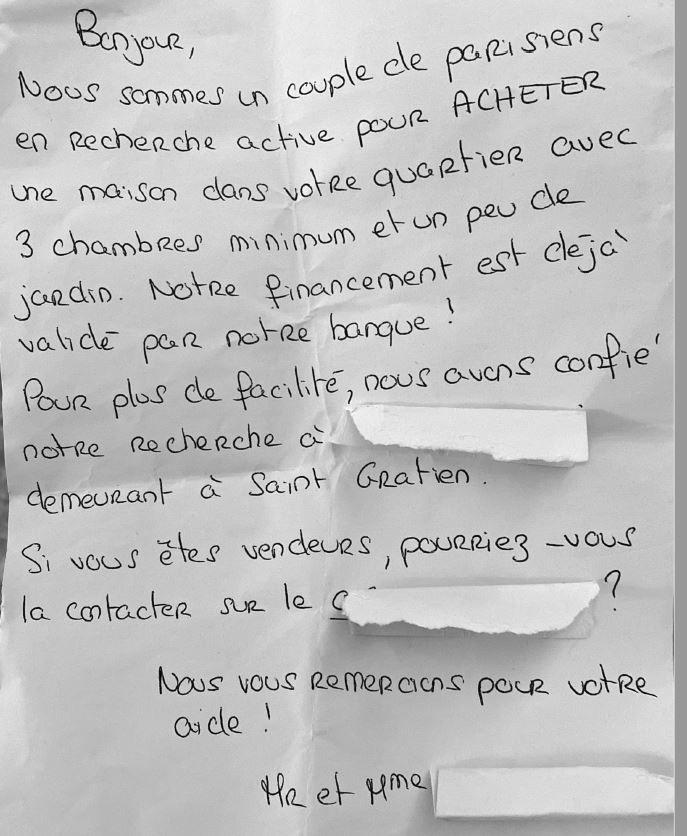 Bonjour,
Nous sommes un couple de parisiens
en recherche active pour ACHETER
une maison dans votre quartier avec
3 chambres minimum et un peu de
jardin. Notre financement est déjà
validé par notre banque !
Pour plus de facilité, nous avons confié
notre recherche à
demeurant à Saint Gratien.
Si vous êtes vendeurs, pourriez-vous
la contacter sur le ?
Nous vous remercions pour votre
aide !
Mr et Mme